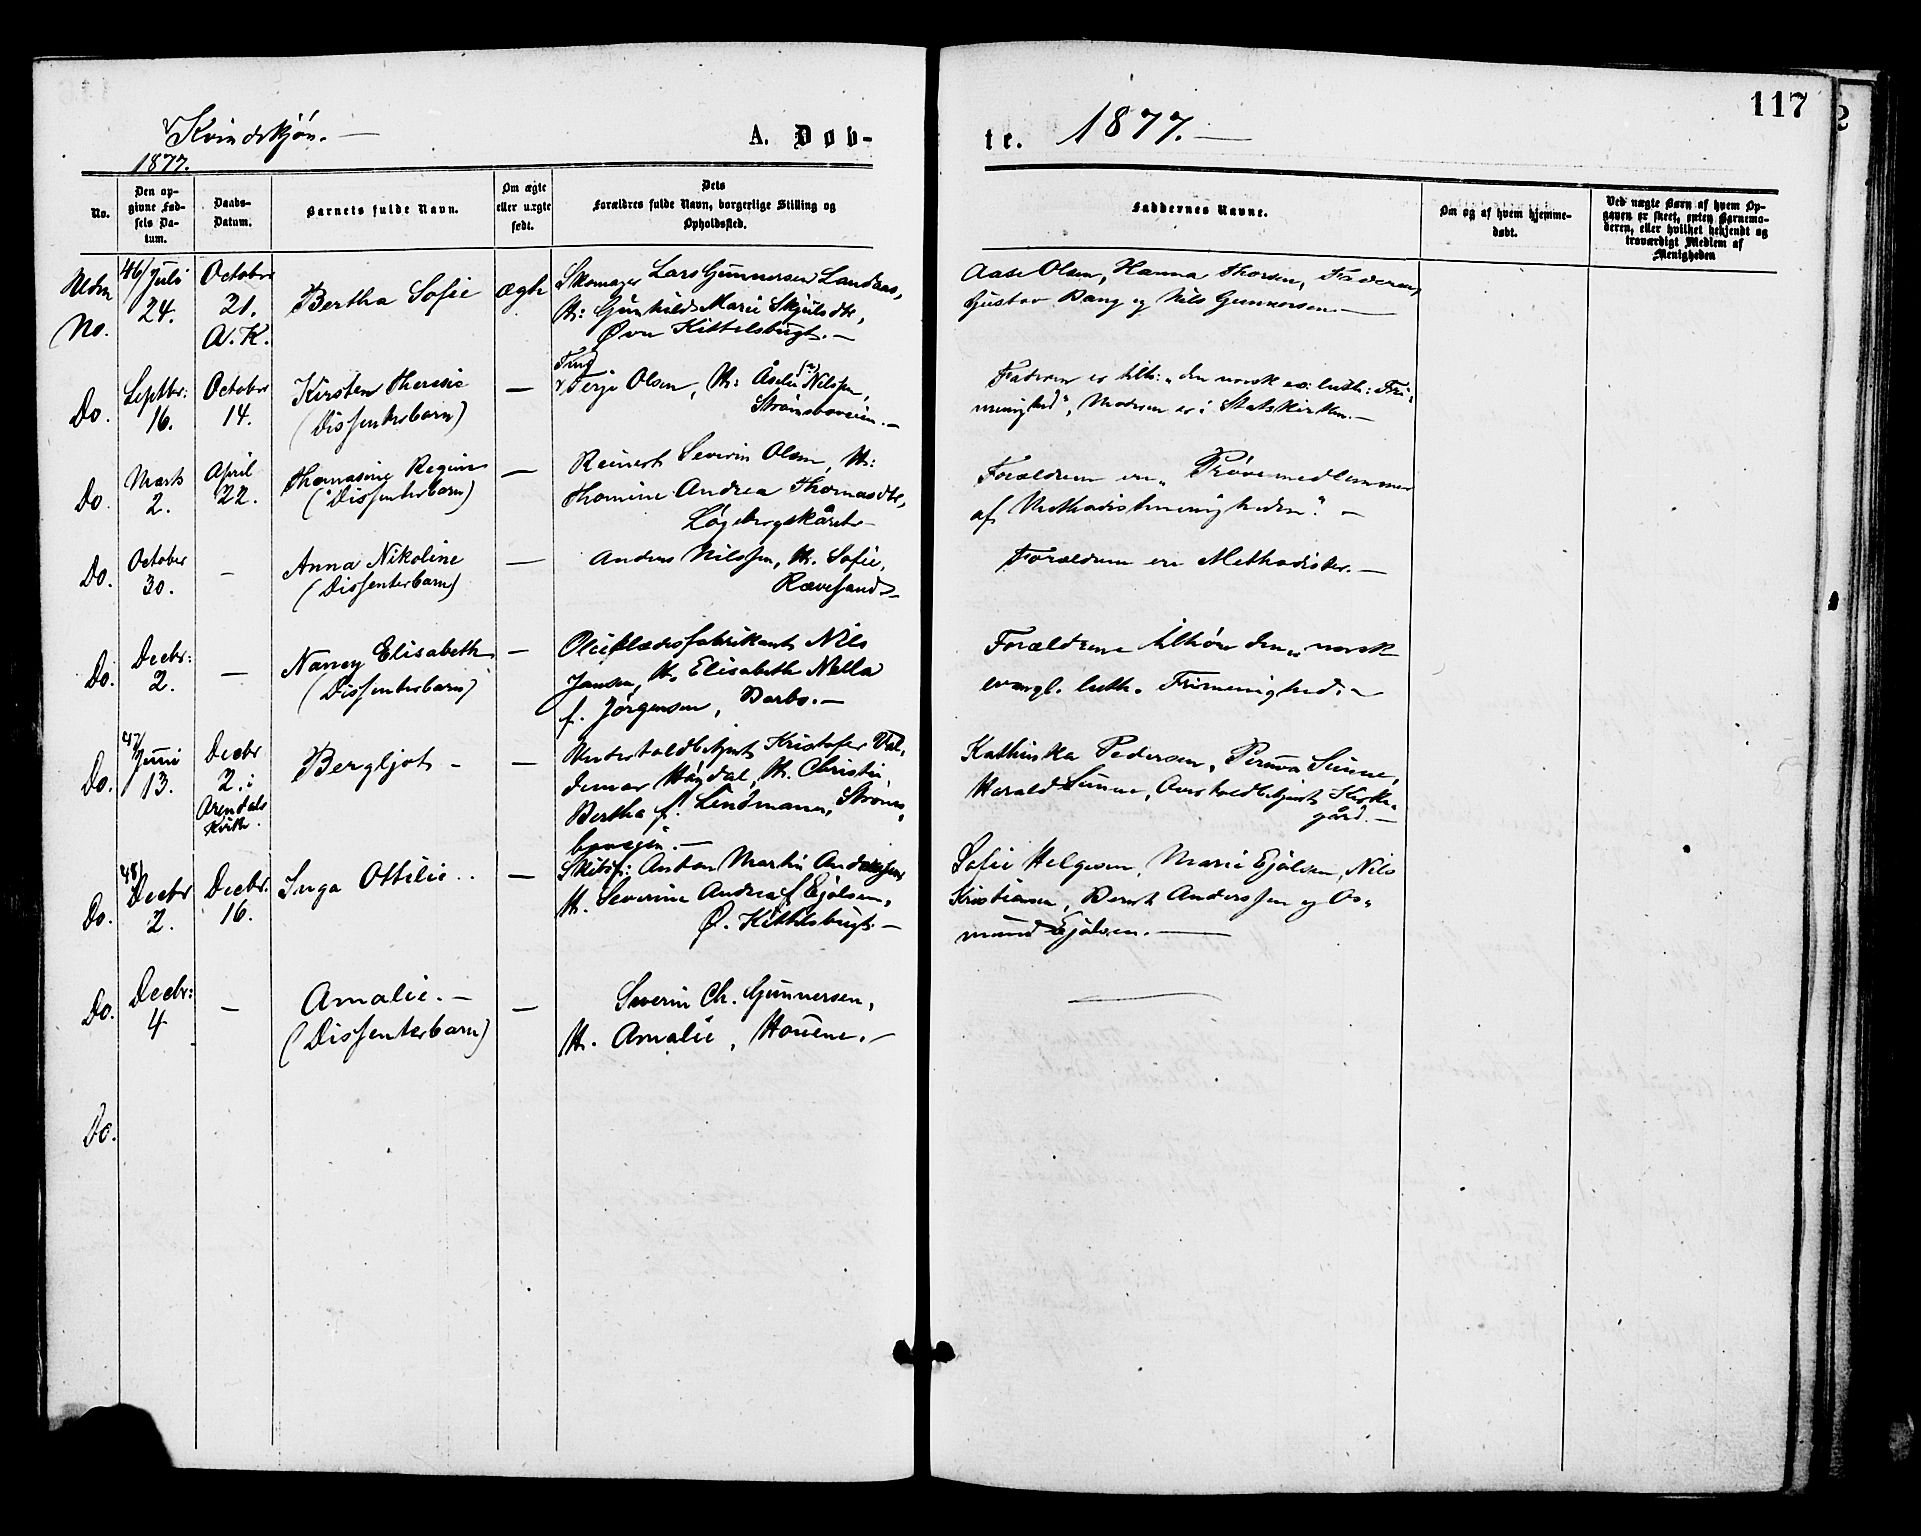 117
Kvindekjøn.—
A. Døb-
te. 1877.—
1877.
No.
Den op-
givne Fød-
sels Da-
tum.
Daabs-
Datum.
Barnets fulde Navn.
Om ægte
eller uægte
født.
Dets
Forældres fulde Navn, borgerlige Stilling og
Opholdssted.
Faddernes Navne.
Om og af hvem hjemme-
døbt.
Ved uægte Børn af hvem Op-
gaven er skeet, enten Barnemo-
deren, eller hvilket bekjendt og
troværdigt Medlem af
Menigheden
Uden
No.
46/ Juli
24.
Octobr
21.
A. K.
Bertha Sofie
ægte
Skomager Lars Gunnersen Landaas,
H: Gunhild Marie Skjulsdtr,
Øvre Kittelsbugt.—
Aase Olsen, Hanna Thorsen, Faderen,
Gustav Dang og Nils Gunnersen.—
Do.
Septbr:
16.
October
14.
Kirsten Theresie
(Dissenterbarn)
—
Terje Olsen, H: Åselie Nilsen,
Strømsboveien.—
Faderen er tilh: „den norsk ev: luth: Fri-
menighed“, Moderen er i Statskirken.—
Do.
Marts
2.
April
22.
Thomasine Regine
(Dissenterbarn)
—
Reinert Severin Olsen, H:
Thomine Andrea Thomasdtr,
Forældrene ere „Prøvemedlemmer
af Methodistmenigheden“.—
Do.
October
30.
—
Anna Nikoline
(Dissenterbarn)
—
Anders Nilssen, H. Sofie,
Rævesand.—
Forældrene ere Methodister.—
Do.
Decbr:
2.
—
Nancy Elisabeth
(Dissenterbarn)
—
Olieklædesfabrikant Nils
Jansen, H. Elisabeth Nella
f. Jörgensen, Barbo.—
Forældrene tilhøre den „norsk
evangl. luth. Frimenighed.“—
Do.
47/
Juni
13.
Decbr
2. i
Arendals
Kirke.
Bergljot —
—
Undertoldbetjent Kristofer Val-
demar Högdal, H. Christie
Bertha f. Lindmann, Strøms-
boveien.—
Kathinka Pedersen, Petrova Sunne,
Harald Sunne, Overtoldbetjent Kirke-
gård.—
Do.
48/
Decbr
2.
Decbr.
16.
Inga Ottilie..
—
Skibsf: Anton Martin Anderssen
H. Severine Andrea f. Ejolsen,
Ø. Kittelsbugt.—
Sofie Helgesen, Marie Ejólsen, Nils
Kristiansen, Bernt Anderssen og Os-
mund Ejólsen.—
Do.
Decbr:
4
—
Amalie.—
(Dissenterbarn)
—
Severin Ch. Gunnersen,
H. Amalie, Houene.—
—
Do.